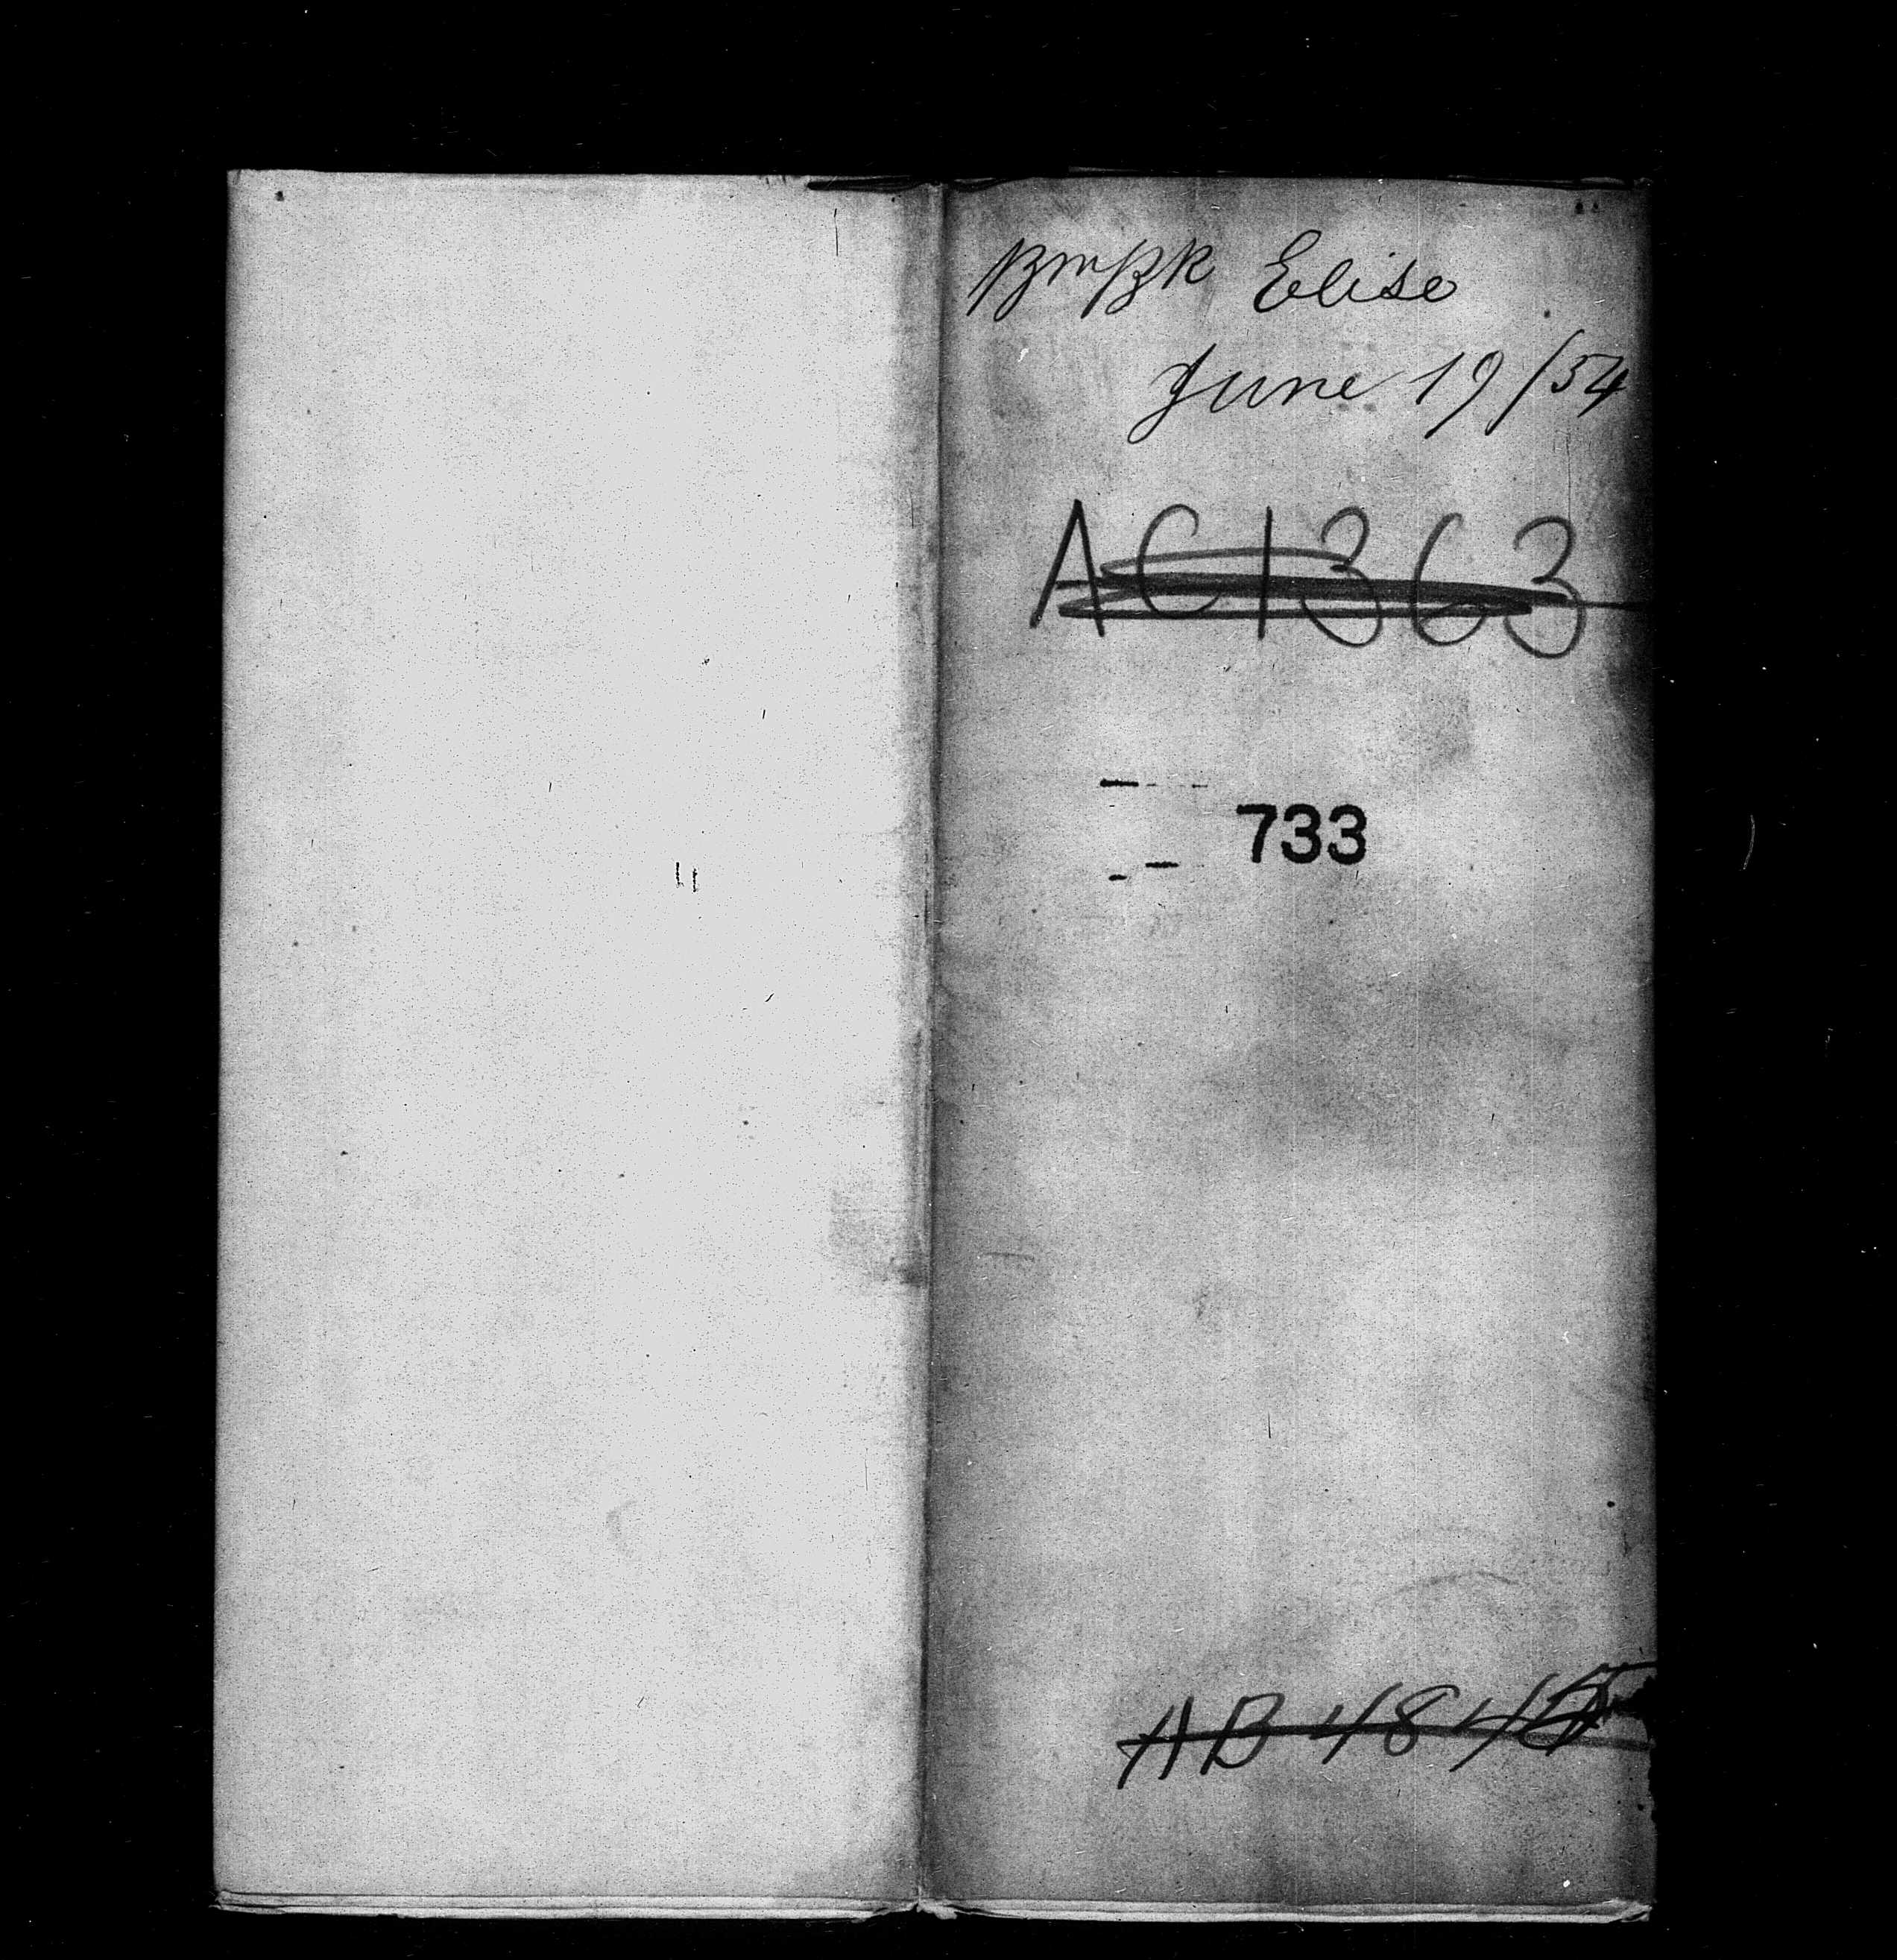 BrmBk Elise
June 19/54
AC1363
733
AB 4845